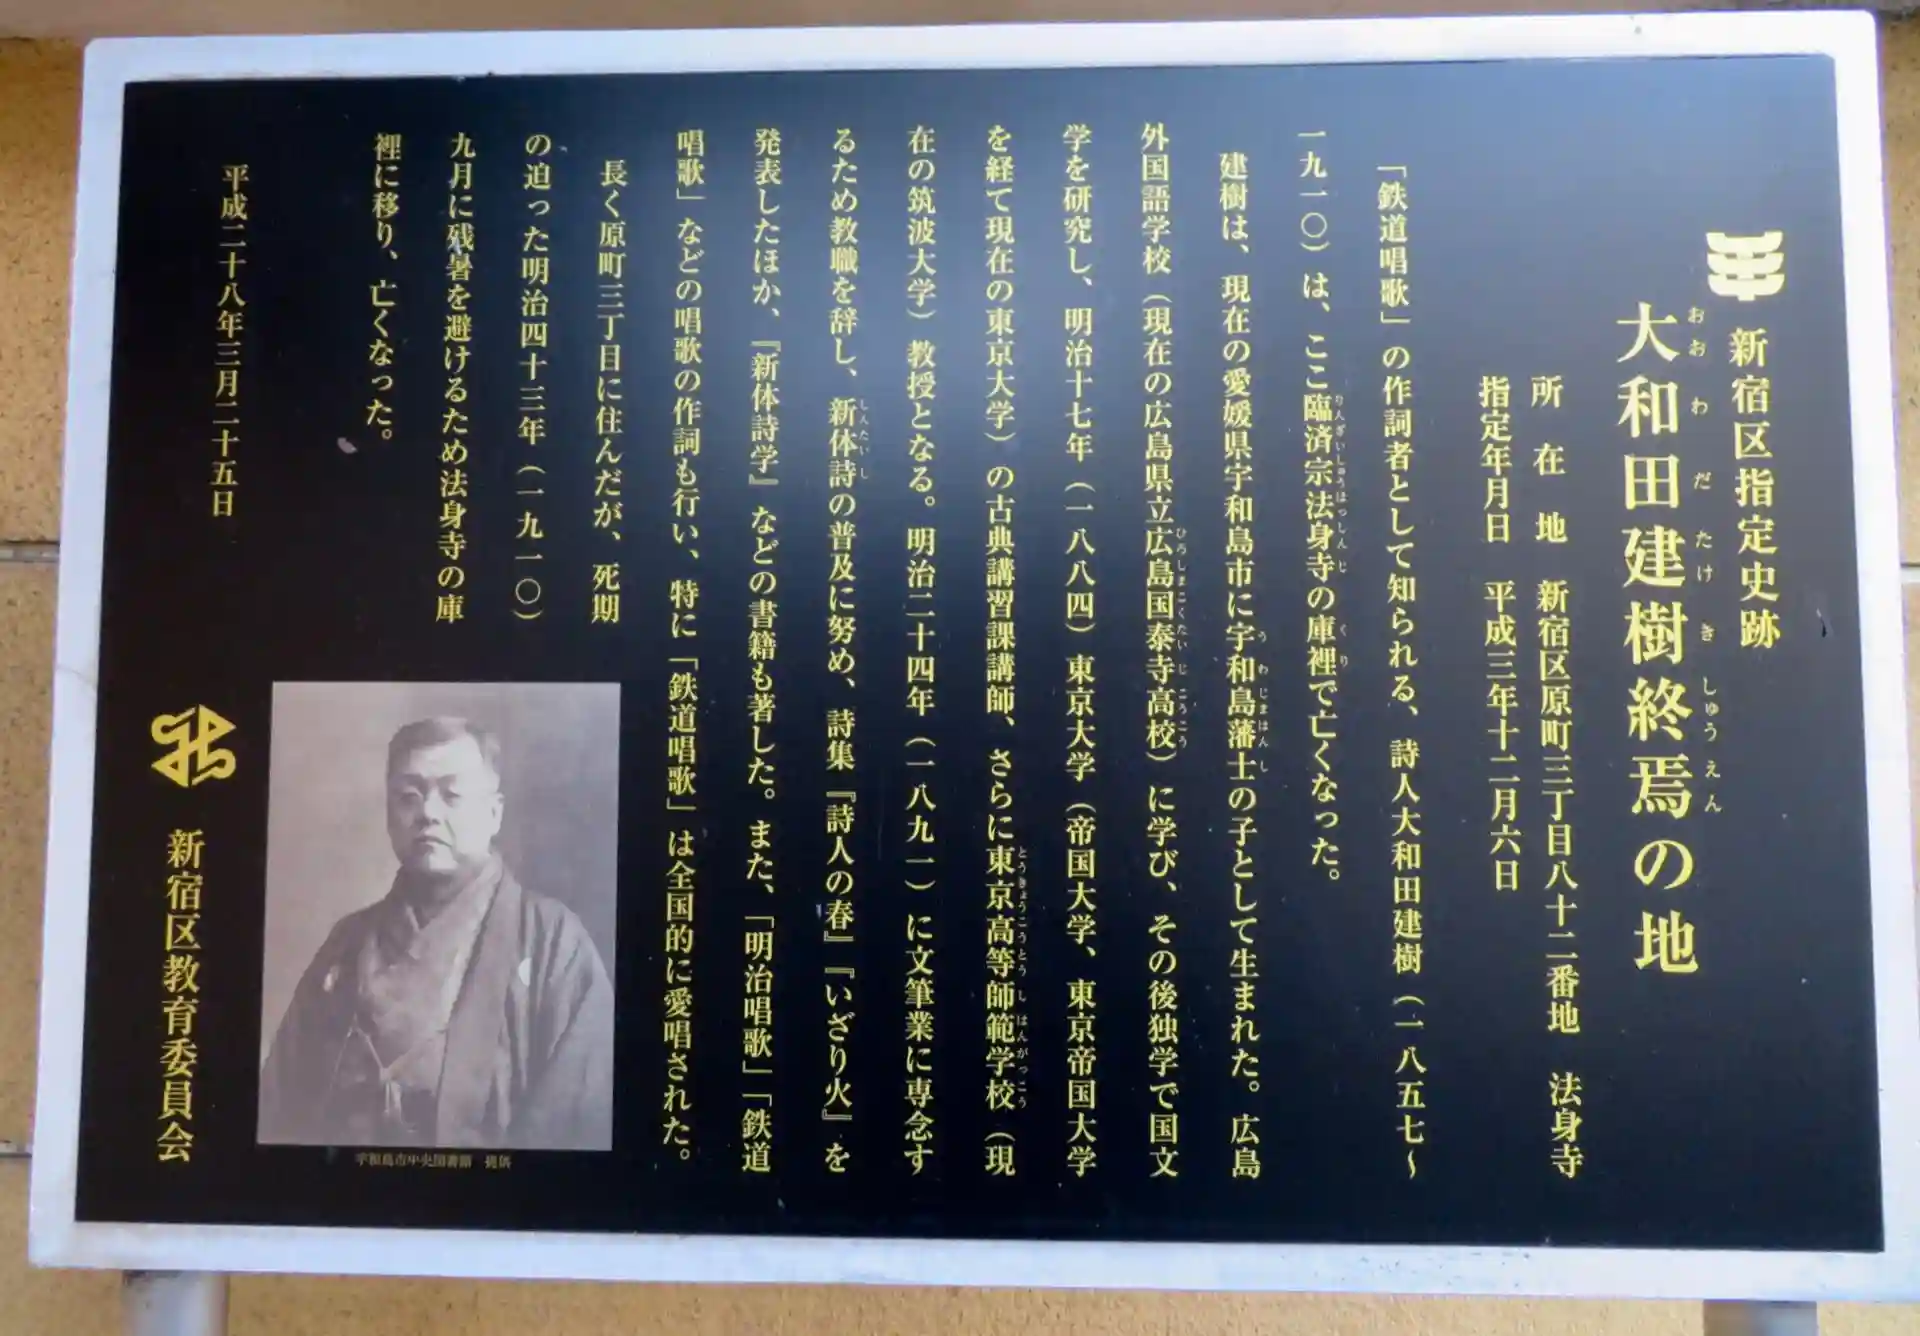 新宿区指定史跡
大和田建樹終焉の地
おおわだたけきしゅうえん
所在地 新宿区原町三丁目八十二番地 法身寺
指定年月日 平成三年十二月六日
「鉄道唱歌」の作詞者として知られる、詩人大和田建樹（一八五七～
一九一〇）は、ここ臨済宗法身寺の庫裡で亡くなった。
りんざいしゅうほっしんじ くり
建樹は、現在の愛媛県宇和島市に宇和島藩士の子として生まれた。広島
うわじまはんし
外国語学校（現在の広島県立広島国泰寺高校）に学び、その後独学で国文
ひろしまこくたいじこうこう
学を研究し、明治十七年（一八八四）東京大学（帝国大学、東京帝国大学
を経て現在の東京大学）の古典講習課講師、さらに東京高等師範学校（現
とうきょうこうとうしはんがっこう
在の筑波大学）教授となる。明治二十四年（一八九一）に文筆業に専念す
るため教職を辞し、新体詩の普及に努め、詩集『詩人の春』『いざり火』を
しんたいし
発表したほか、『新体詩学』などの書籍も著した。また、「明治唱歌」「鉄道
唱歌」などの唱歌の作詞も行い、特に「鉄道唱歌」は全国的に愛唱された。
長く原町三丁目に住んだが、死期
の迫った明治四十三年（一九一〇）
九月に残暑を避けるため法身寺の庫
裡に移り、亡くなった。
平成二十八年三月二十五日
新宿区教育委員会
宇和島市中央図書館 提供